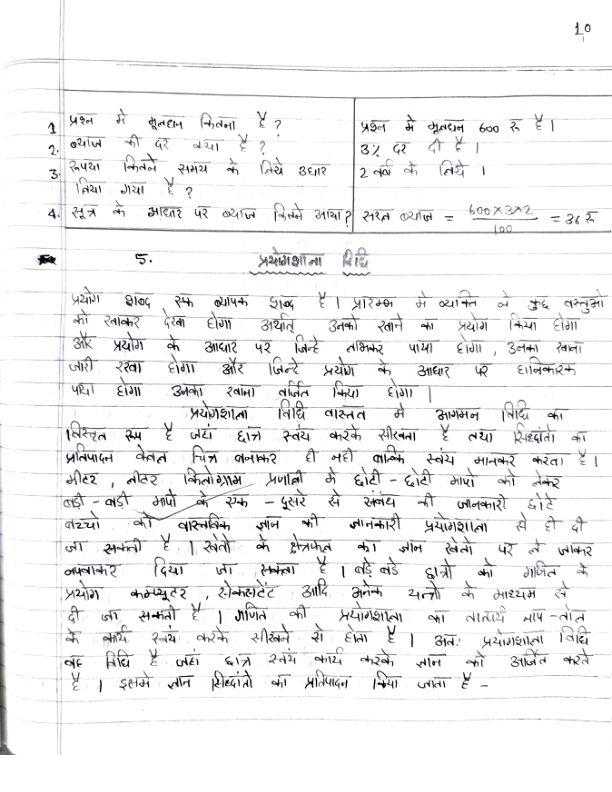 10
1 प्रश्न में मूलधन कितना है ?
प्रश्न में मूलधन 600 रु है ।
2. ब्याज की दर क्या है ?
3% दर दी है ।
3. रूपया कितने समय के लिये उधार
2 वर्ष के लिये ।
लिया गया है ?
4. सूत्र के आधार पर ब्याज कितने आया ?
सरल ब्याज = 600×3×2 / 100 = 36 रु
5. प्रयोगशाला विधि
प्रयोग शब्द एक व्यापक शब्द है । प्रारम्भ में व्यक्ति ने कुछ वस्तुओ
को खाकर देखा होगा अर्थात् उनको खाने का प्रयोग किया होगा
और प्रयोग के आधार पर जिन्हे लाभकर पाया होगा, उनका खाना
जारी रखा होगा और जिन्हे प्रयोग के आधार पर हानिकारक
पाया होगा उनका खाना वर्जित किया होगा ।
प्रयोगशाला विधि वास्तव में आगमन विधि का
विस्तृत रूप है जहां छात्र स्वंय करके सीखता है तथा सिध्दांतो का
प्रतिपादन केवल चित्र बनाकर ही नही बल्कि स्वंय मानकर करता है ।
मीटर, लीटर किलोग्राम प्रणाली में छोटी - छोटी मापो को लेकर
बड़ी - बड़ी मापो के एक - दूसरे से संबंध की जानकारी छोटे
बच्चो को वास्तविक ज्ञान की जानकारी प्रयोगशाला से ही दी
जा सकती है । खेतो के क्षेत्रफल का ज्ञान खेतो पर ले जाकर
नपवाकर दिया जा सकता है । बड़े बडे छात्रो को गणित के
प्रयोग कम्प्यूटर, सेक्सटेंट आदि अनेक यन्त्रो के माध्यम से
दी जा सकती है । गणित की प्रयोगशाला का तात्पर्य नाप -तोल
के कार्य स्वंय करके सीखने से होता है । अतः प्रयोगशाला विधि
वह विधि है जहां छात्र स्वंय कार्य करके ज्ञान को अर्जित करते
है । इसमे ज्ञान सिध्दांतो का प्रतिपादन किया जाता है -